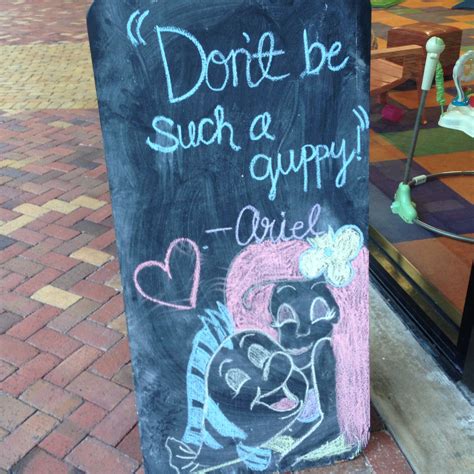 "Don't be
such a
guppy!"
-Ariel